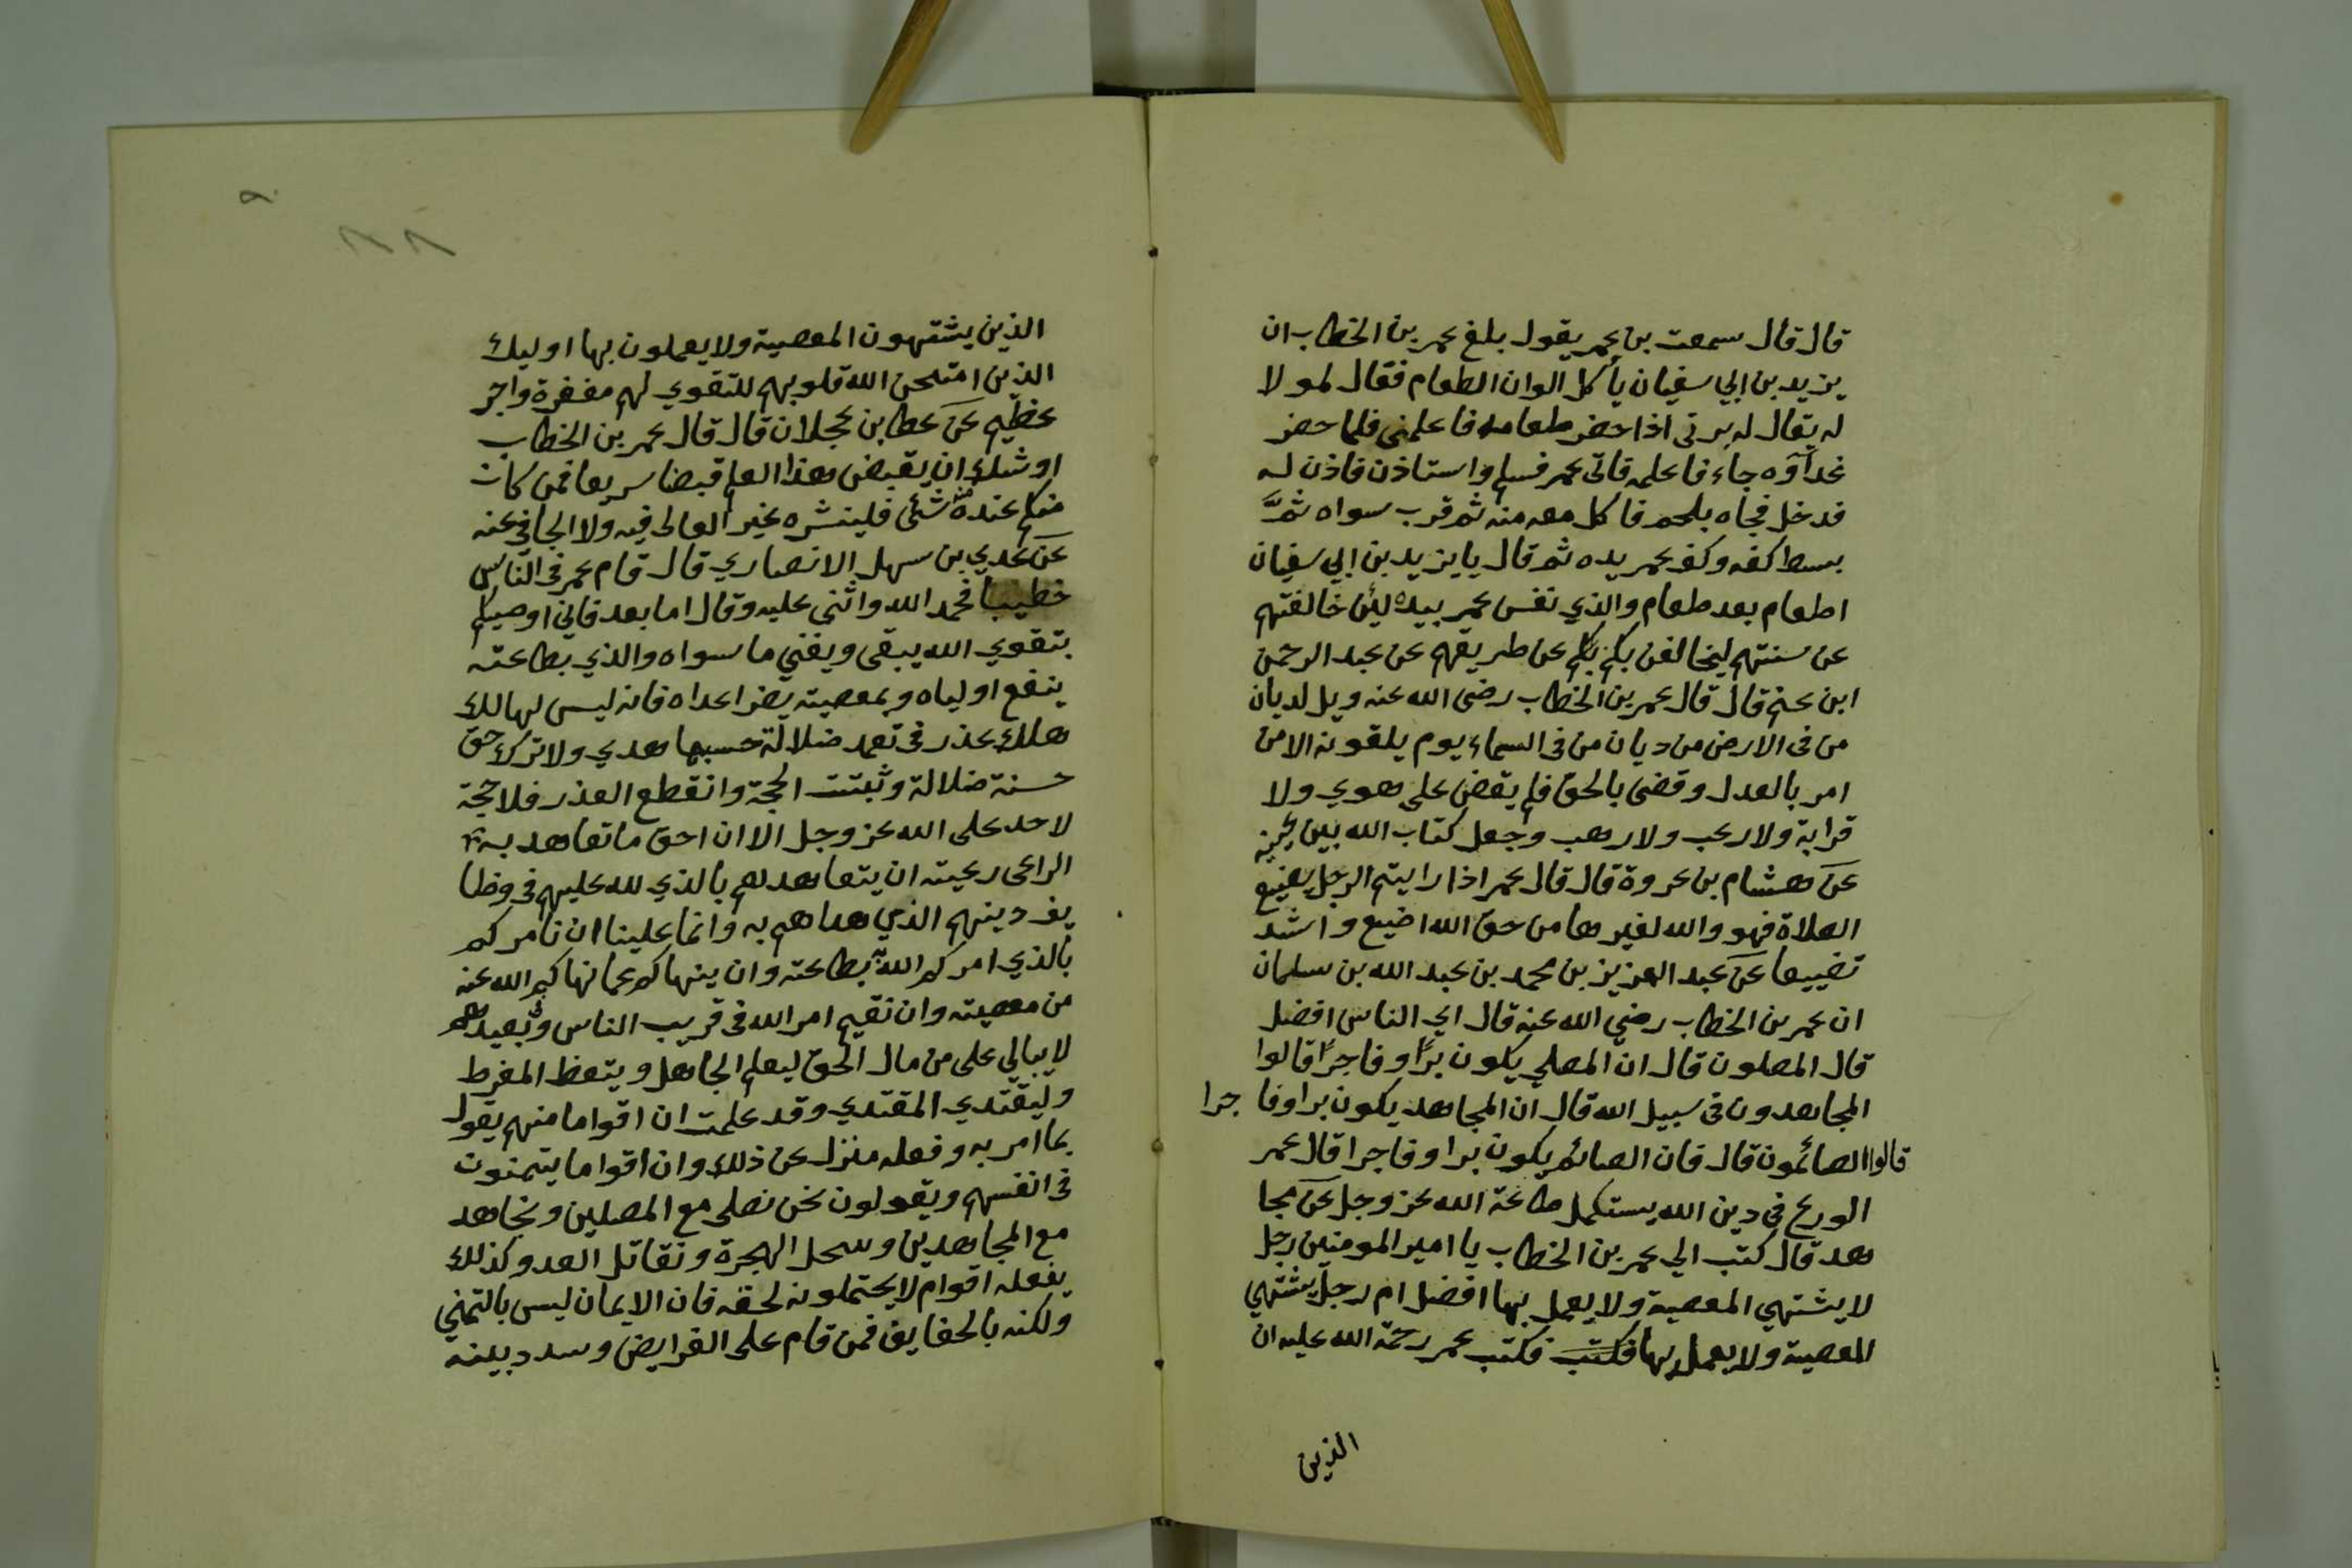 قال قال سمعت بن عمر يقول بلغ عمر بن الخطاب ان
يزيد بن ابي سفيان يأكل الوان الطعام فقال لمولا
له يقال له يرتى اذا حضر طعامه فاعلمنى فلما حضر
غداؤه جاء فاعلمه فاتى عمر فسلم واستاذن فاذن له
فدخل فجاه بلحم فاكل معه منه ثم قرب سواه ثمَّ
بسط كفه وكف عمر يده ثم قال يا يزيد بن ابي سفيان
اطعام بعد طعام والذي نفس عمر بيده لئن خالفتهم
عن سنتهم ليخالفن بكم بكم عن طريقهم عن عبد الرحمن
ابن غنم قال قال عمر بن الخطاب رضى الله عنه ويل لديان
من فى الارض من ديان من فى السماء يوم يلقونه الا من
امر بالعدل وقضى بالحق فلم يقض على هوي ولا
قرابة ولا رغب ولا رهب وجعل كتاب الله بين عينيه
عن هشام بن عروة قال قال عمر اذا رايتم الرجل يضيع
الصلاة فهو والله لغيرها من حق الله اضيع واشد
تضييعا عن عبد العزيز بن محمد بن عبد الله بن سلمان
ان عمر بن الخطاب رضي الله عنه قال اي الناس افضل
قال المصلون قال ان المصلي يكون برًا وفاجرًا قالوا
المجاهدون فى سبيل الله قال ان المجاهد يكون برا وفا جرا
قالوا الصائمون قال فان الصائم يكون برا وفاجرا قال عمر
الورع فى دين الله يستكمل طاعة الله عز وجل عن مجا
هد قال كتب الي عمر بن الخطاب يا امير المومنين رجل
لا يشتهي المعصية ولا يعمل بها افضل ام رجل يشتهي
المعصية ولا يعمل بها فكتب فكتب عمر رحمة الله عليه ان
الذين
الذين يشتهون المعصية ولا يعملون بها اوليك
الذين امتحن الله قلوبهم للتقوي لهم مغفرة واجر
عظيم عن عطا بن عجلان قال قال عمر بن الخطاب
اوشك ان يقبض هذا العلم قبضا سريعا فمن كان
منكم عنده منه شئ فلينشره غير الغالى فيه ولا الجافي عنه
عن عدي بن سهل الانصاري قال قام عمر فى الناس
خطيبا فحمد الله واثنى عليه وقال اما بعد فاني اوصيكم
بتقوي الله يبقى ويفني ما سواه والذي بطاعته
ينفع اولياه وبمعصيته يضر اعداه فانه ليس لهالك
هلك عذر فى تعمد ضلالة حسبها هدي ولا ترك حق
حسنة ضلالة وثبتت الحجة وانقطع العذر فلا حجة
لاحد على الله عز وجل الا ان احق ما تعاهد به
الراعى رعيته ان يتعاهدهم بالذي لله عليهم فى وظا
يف دينهم الذي هداهم به وانما علينا ان نامركم
بالذي امركم الله به بطاعته وان ينهاكم عما نهاكم الله عنه
من معصيته وان نقيم امر الله فى قريب الناس وبعيدهم
لا يبالي على من مال الحق ليعلم الجاهل ويتعظ المفرط
وليقتدي المقتدي وقد علمت ان اقواما منهم يقول
بما امر به وفعله منزل عن ذلك وان اقواما يتمنون
فى انفسهم ويقولون نحن نصلى مع المصلين ونجاهد
مع المجاهدين وننتحل الهجرة ونقاتل العدو كذلك
يفعله اقوام لا يحتملونه لحقه فان الايمان ليس بالتمني
ولكنه بالحقايق فمن قام على الفرايض وسدد بينه